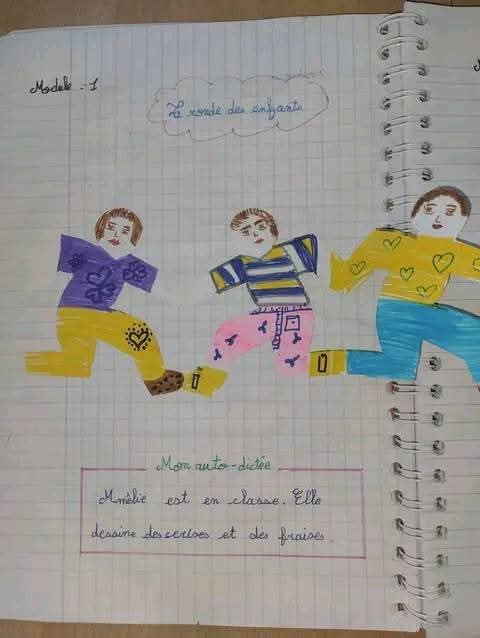 Module : 1
La ronde des enfants
Mon auto-dictée
Amélie est en classe. Elle
dessine des cerises et des fraises.